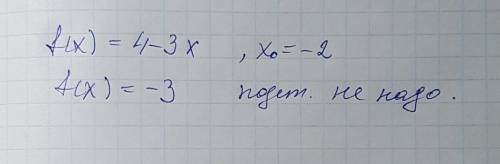 f(x) = 4-3x , x₀ = -2
f(x) = -3 подст. не надо.